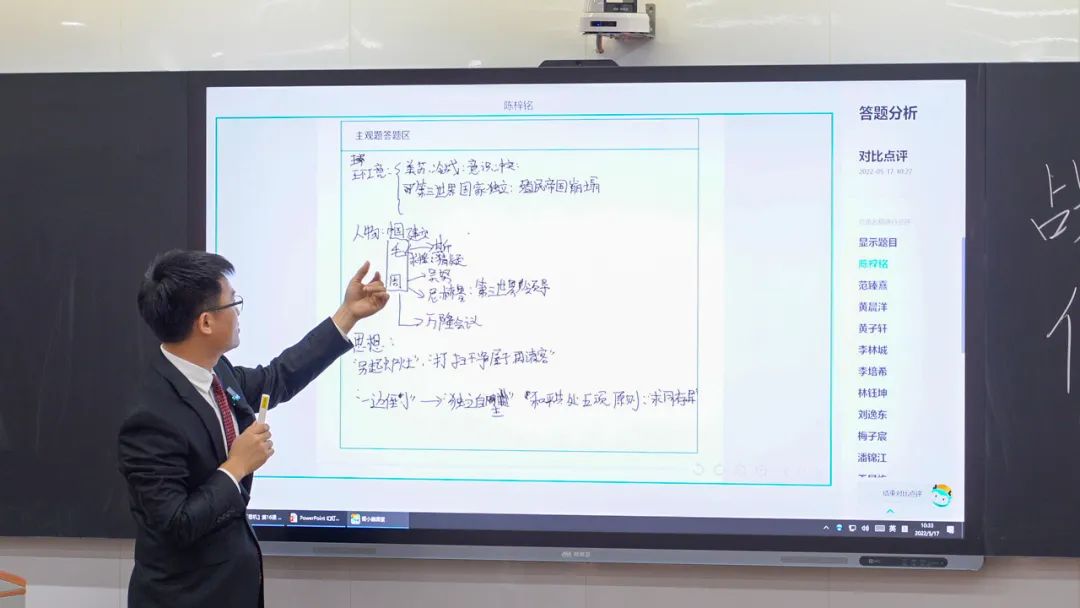 陈梓铭
主观题答题区
环境:美苏冷战:意识
第三世界国家独立:殖民帝国崩塌
人物:中国建议
毛→斯
周→吴努
→尼赫鲁:第三世界领导
→万隆会议
思想:
"另起炉灶":"打扫干净屋子再请客"
"一边倒"→"独立自主" "和平共处五项原则:求同存异
答题分析
对比点评
2022-05-17 10:27
显示题目
陈梓铭
范臻熹
黄晨洋
黄子轩
李林城
李培希
林钰坤
刘逸东
梅子宸
潘锦江
结束对比点评
PowerPoint 幻灯...
英
10:33
2022/5/17
战